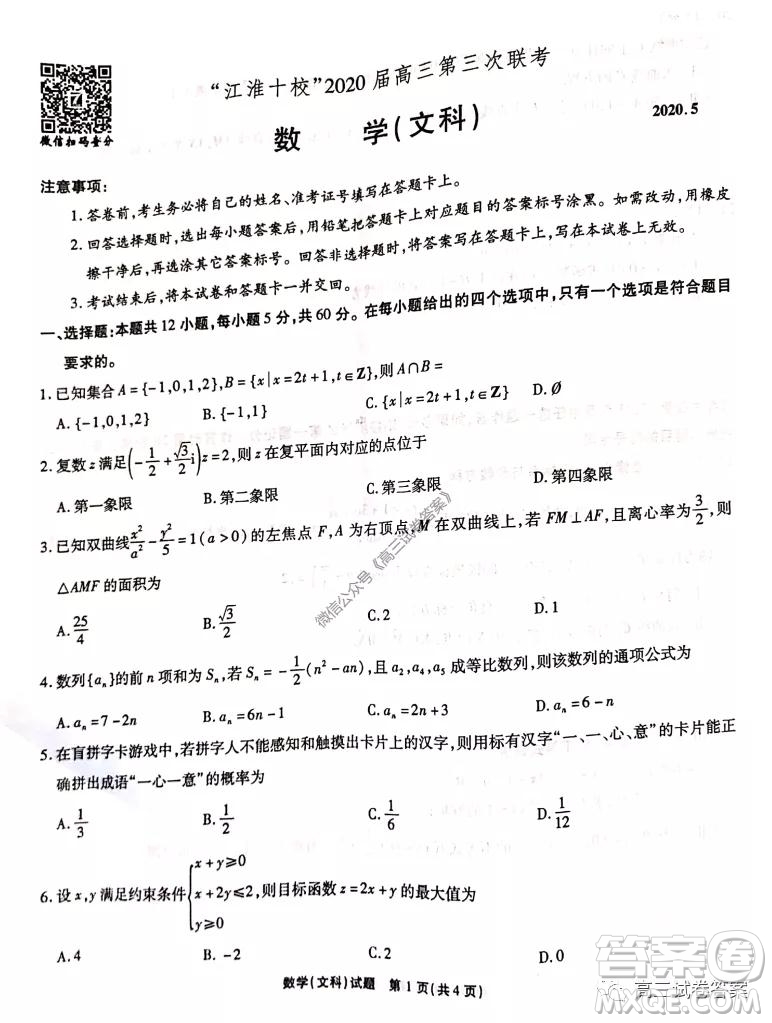 “江淮十校”2020届高三第三次联考
微信扫码查分
数 学(文科)
2020.5
注意事项:
1.答卷前,考生务必将自己的姓名、准考证号填写在答题卡上。
2.回答选择题时,选出每小题答案后,用铅笔把答题卡上对应题目的答案标号涂黑。如需改动,用橡皮
擦干净后,再选涂其它答案标号。回答非选择题时,将答案写在答题卡上,写在本试卷上无效。
3.考试结束后,将本试卷和答题卡一并交回。
一、选择题:本题共12小题,每小题5分,共60分。在每小题给出的四个选项中,只有一个选项是符合题目
要求的。
1.已知集合A={-1,0,1,2},B={x|x=2t+1,t∈Z},则A∩B=
A.{-1,0,1,2} B.{-1,1} C.{x|x=2t+1,t∈Z} D.∅
2.复数z满足(-1/2+√3/2 i)z=2,则z在复平面内对应的点位于
A.第一象限 B.第二象限 C.第三象限 D.第四象限
3.已知双曲线x²/a²-y²/5=1(a>0)的左焦点F,A为右顶点,M在双曲线上,若FM⊥AF,且离心率为3/2,则
△AMF的面积为
A.25/4 B.√3/2 C.2 D.1
微信公众号《高三试卷答案》
4.数列{aₙ}的前n项和为Sₙ,若Sₙ=-1/2(n²-an),且a₂,a₄,a₅成等比数列,则该数列的通项公式为
A.aₙ=7-2n B.aₙ=6n-1 C.aₙ=2n+3 D.aₙ=6-n
5.在盲拼字卡游戏中,若拼字人不能感知和触摸出卡片上的汉字,则用标有汉字“一、一、心、意”的卡片能正
确拼出成语“一心一意”的概率为
A.1/3 B.1/2 C.1/6 D.1/12
6.设x,y满足约束条件{x+y≥0 x+2y≤2 y≥0,则目标函数z=2x+y的最大值为
A.4 B.-2 C.2 D.0
数学(文科)试题 第1页(共4页)
答案圈
高三试卷答案
MXQE.COM